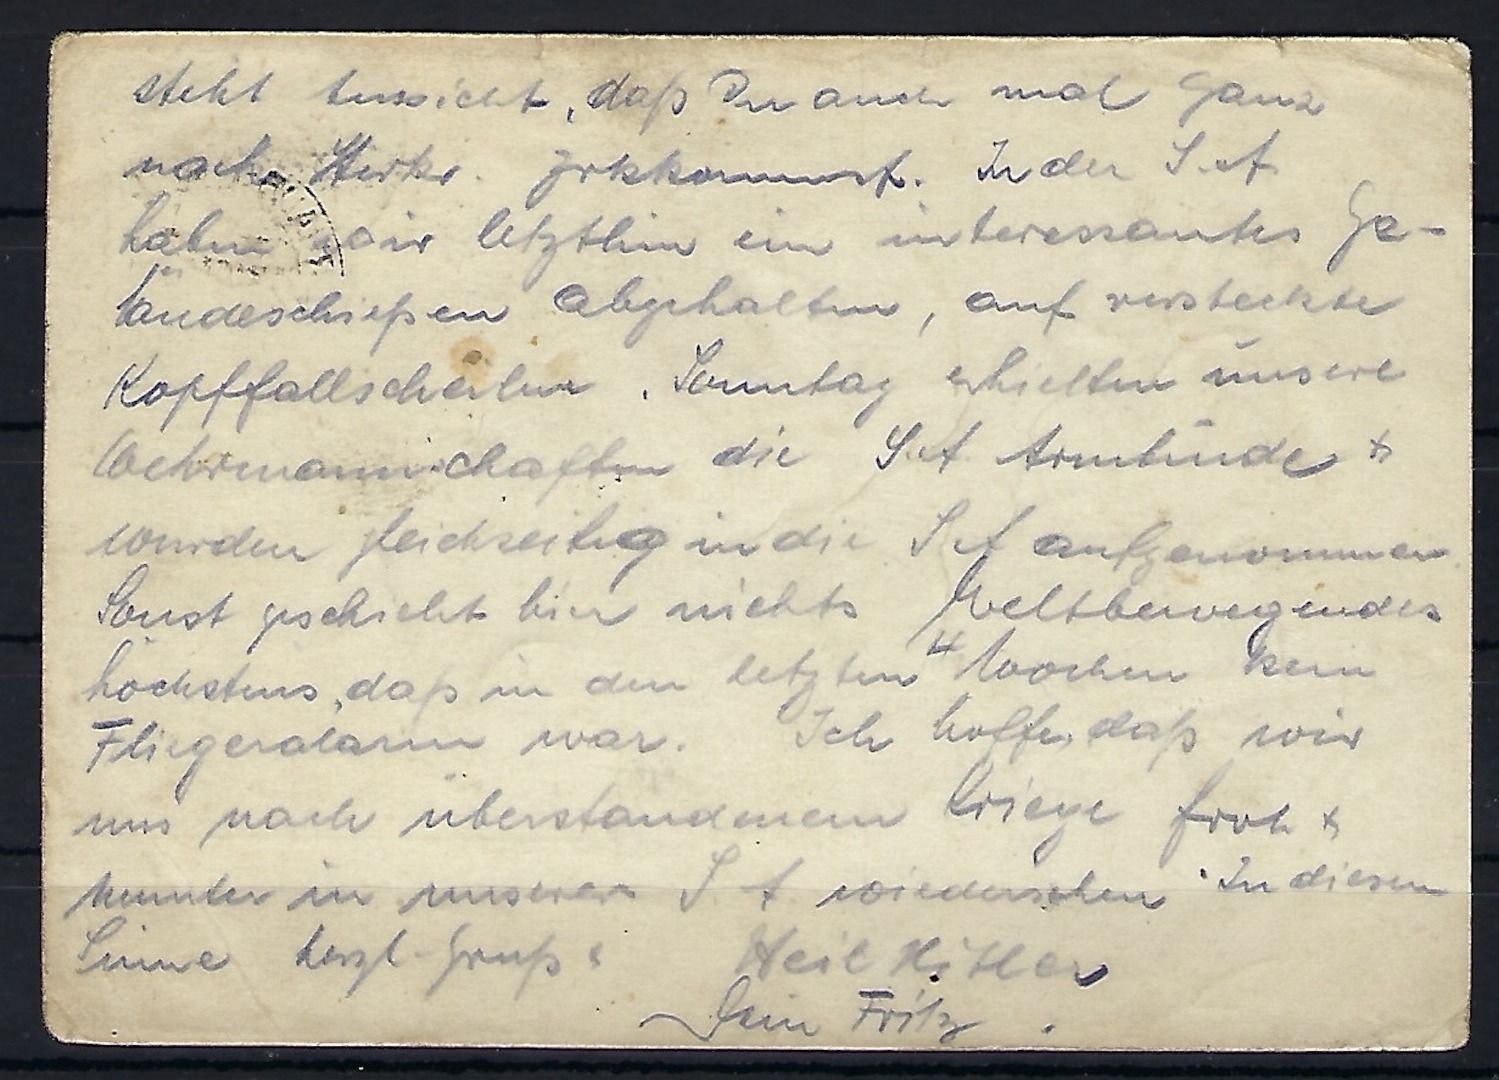 steht Aussicht, daß Du auch mal ganz
nach
haben wir letzthin ein interessantes Ge-
ländeschießen abgehalten, auf versteckte
Kopffallscheiben. Sonntag erhielten unsere
Wehrmannschaften die S.A Armbinde &
wurden gleichzeitig in die S A aufgenommen
Sonst geschieht hier nichts Weltbewegendes
höchstens, daß in den letzten 4 Wochen kein
Fliegeralarm war. Ich hoffe, daß wir
uns nach überstandenem Kriege froh &
munter in unserer S. A. wiedersehen. In diesem
Sinne herzl. Gruß & Heil Hitler
Dein Fritz.